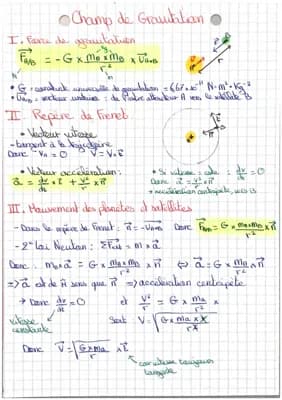 Champ de Gravitation
I. Force de gravitation
F A/B = - G × mA × mB / r² × U A→B
• G : constante universelle de gravitation = 6,67 × 10⁻¹¹ N·m²·Kg⁻²
• U A→B = vecteur unitaire : de l'astre attracteur A vers le satellite B
II. Repère de Frenet
• Vecteur vitesse
- tangent à la trajectoire
Donc Vn = 0 V = V·t
• Vecteur accélération :
a = dv/dt × t + v²/r × n
• Si vitesse = cste : dv/dt = 0
Donc a = v²/r × n
→ accélération centripète, vers
III. Mouvement des planètes et satellites
- Dans le repère de Frenet : n = - U A→B Donc F A/B = G × mA × mB / r² × n
- 2e loi Newton : ΣFext = m × a
Donc : mB × a = G × mA × mB / r² × n ⇔ a = G × mA / r² × n
⇒ a et de même sens que n ⇒ accélération centripète
→ Donc dv/dt = 0 et V²/r = G × mA / r²
vitesse constante
Soit V = √(G × mA × r / r²)
Donc V = √(G × mA / r) × t
car vitesse toujours
tangente